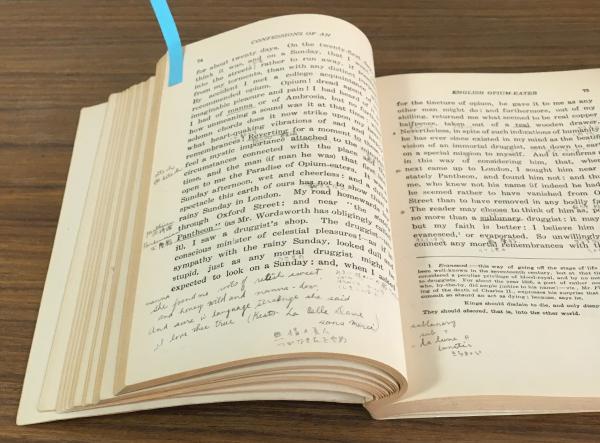 74 CONFESSIONS OF AN
for about twenty days. On the twenty-first
think it was, and on a Sunday, that I
into the streets; rather to run away, if
from my torments, than with any distinct
By accident I met a college acquaintance
recommended opium. Opium! dread agent
imaginable pleasure and pain! I had heard
I had of manna, or of Ambrosia, but no
how unmeaning a sound was it at that
solemn chords does it now strike upon my
what heart-quaking vibrations of sad and
remembrances! Reverting for a moment to
feel a mystic importance attached to the
circumstances connected with the place,
time, and the man (if man he was) that
open to me the Paradise of Opium-eaters.
Sunday afternoon, wet and cheerless: and a
spectacle this earth of ours has not to show than
rainy Sunday in London. My road homewards
through Oxford Street; and near "the
Pantheon" (as Mr. Wordsworth has obligingly called
it), I saw a druggist's shop. The druggist
conscious minister of celestial pleasures!—as
sympathy with the rainy Sunday, looked dull and
stupid, just as any mortal druggist might
expected to look on a Sunday: and, when I
manna
She found me roots of relish sweet
and honey wild and manna-dew,
And sure in language strange she said
I love thee true (Keats: La Belle Dame
sans merci)
ENGLISH OPIUM-EATER 75
for the tincture of opium, he gave it to me as any
other man might do; and furthermore, out of my
shilling, returned me what seemed to be real copper
halfpence, taken out of a real wooden drawer.
Nevertheless, in spite of such indications of humanity
he has ever since existed in my mind as the
vision of an immortal druggist, sent down to earth
on a special mission to myself. And it confirms
in this way of considering him, that, when
next came up to London, I sought him near
stately Pantheon, and found him not: and
me, who knew not his name (if indeed he had
he seemed rather to have vanished from
Street than to have removed in any bodily
The reader may choose to think of him as,
no more than a sublunary druggist: it may
but my faith is better: I believe him
evanesced,¹ or evaporated. So unwillingly
connect any mortal remembrances with
1 Evanesced:—this way of going off the stage of life
been well-known in the seventeenth century, but at that
considered a peculiar privilege of blood-royal, and by no
to druggists. For about the year 1686, a poet of rather
who, by-the-by, did ample justice to his name)—viz., Mr.
ing of the death of Charles II., expresses his surprise that
commit so absurd an act as dying; because, says he,
Kings should disdain to die, and only disappear
They should abscond, that is, into the other world.
sublunary
sub +
la lune
lunatic